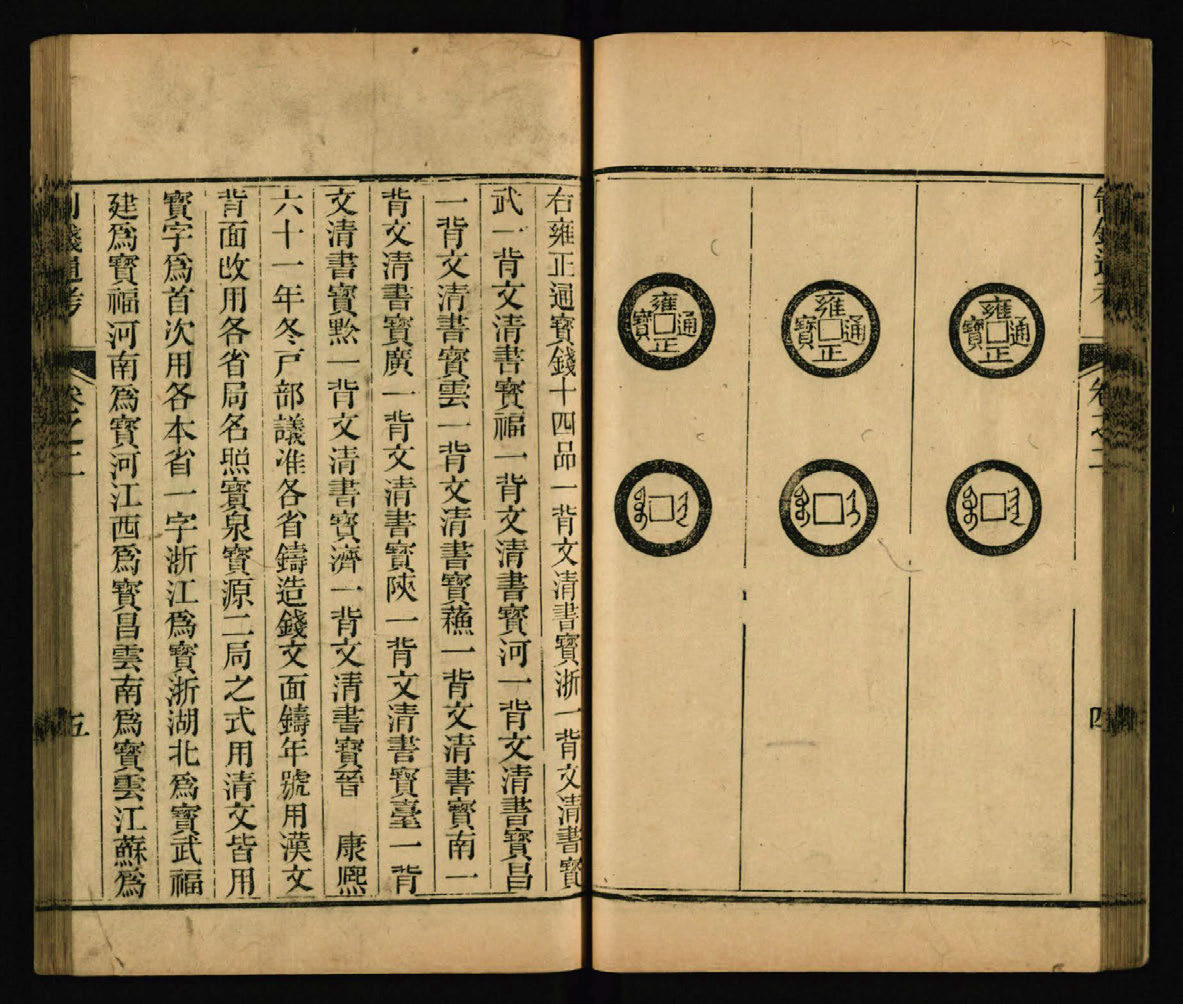 制錢通考
卷之二
四
雍正通寶
雍正通寶
雍正通寶
右雍正通寶錢十四品一背文清書寶浙一背文清書寶
武一背文清書寶福一背文清書寶河一背文清書寶昌
一背文清書寶雲一背文清書寶蘓一背文清書寶南一
背文清書寶廣一背文清書寶陝一背文清書寶臺一背
文清書寶黔一背文清書寶濟一背文清書寶晉　康熙
六十一年冬戸部議准各省鑄造錢文面鑄年號用漢文
背面改用各省局名照寶泉寶源二局之式用清文皆用
寶字爲首次用各本省一字浙江爲寶浙湖北爲寶武福
建爲寶福河南爲寶河江西爲寶昌雲南爲寶雲江蘇爲
制錢通考
卷之二
五